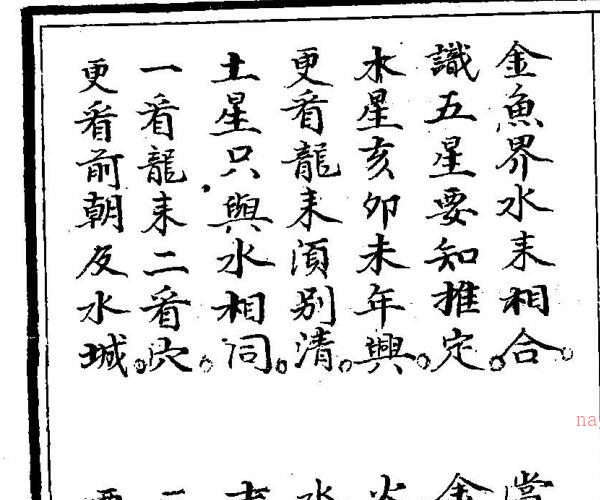 金魚界水来相合。
識五星要知推定。
木星亥卯未年興。
更看龍来須别清。
土星只與水相同。
一看龍来二看穴。
更看前朝及水城。
na